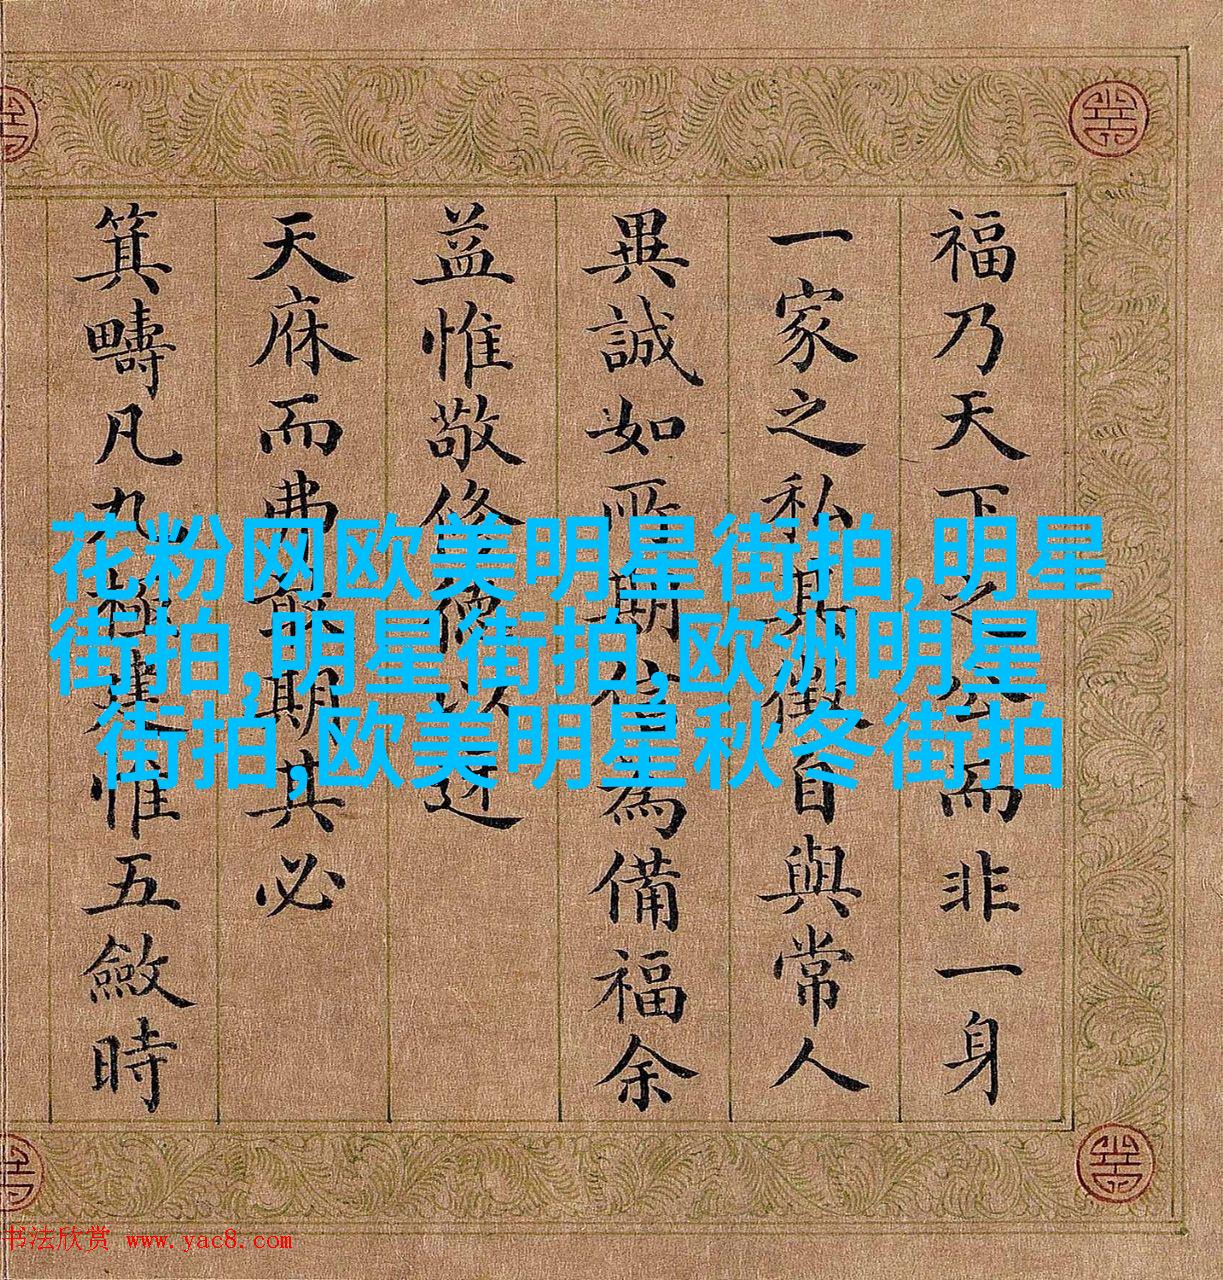 福乃天下之公而非一身
一家之私其徵自與常人
異誠如所期信為備福余
益惟敬修德以迓
天庥而弗敢期其必
箕疇凡九極建惟五斂時
花粉网欧美明星街拍,明星
街拍,明星街拍,欧洲明星
街拍,欧美明星秋冬街拍
书法欣赏 www.yac8.com